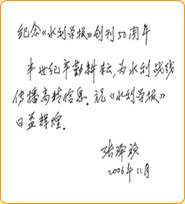 纪念《水利导报》创刊50周年
半世纪辛勤耕耘，为水利战线
传播高精信息。祝《水利导报》
日益辉煌。
2006年11月